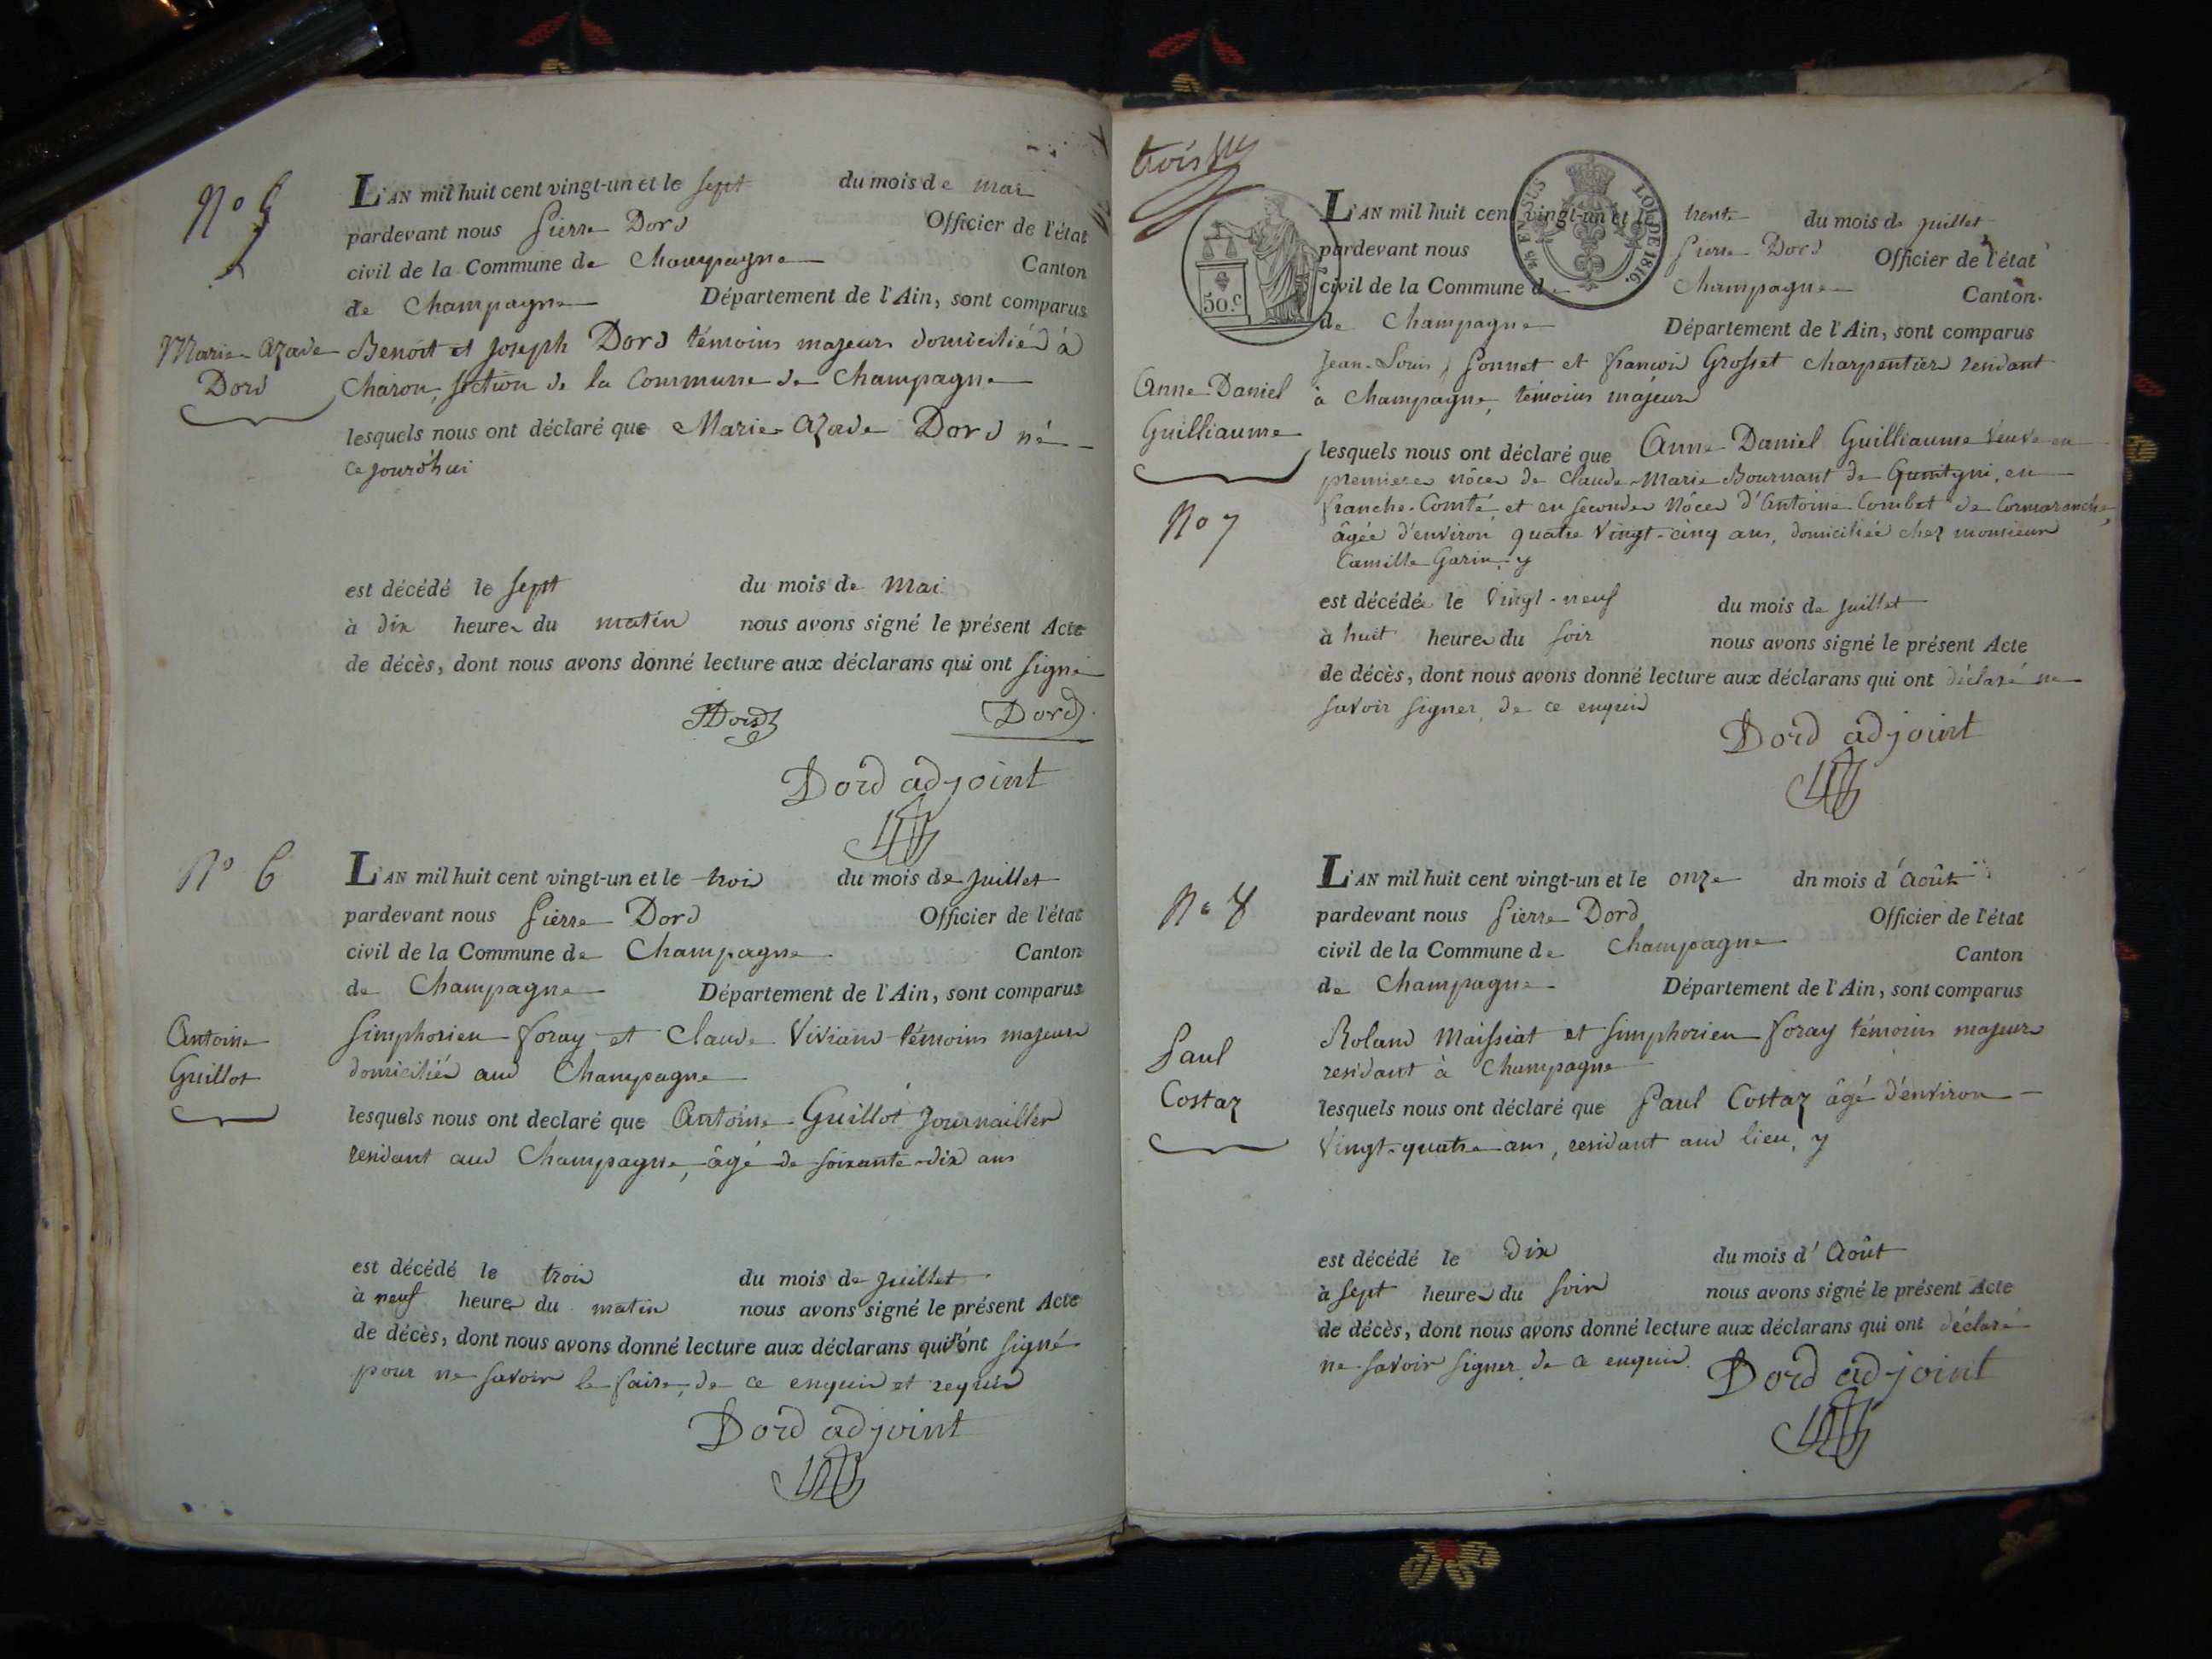 N° 5
L'AN mil huit cent vingt-un et le sept du mois de mai
pardevant nous Pierre Dord Officier de l'état
civil de la Commune de Champagne Canton
de Champagne Département de l'Ain, sont comparus
Marie Azade
Dord
Benoit et Joseph Dord témoins majeurs domiciliés à
Charon, section de la Commune de Champagne
lesquels nous ont déclaré que Marie Azade Dord né
ce jourd'hui
est décédé le sept du mois de Mai
à dix heures du matin nous avons signé le présent Acte
de décès, dont nous avons donné lecture aux déclarans qui ont signé
Dord
Dord adjoint
N° 6
L'AN mil huit cent vingt-un et le trois du mois de juillet
pardevant nous Pierre Dord Officier de l'état
civil de la Commune de Champagne Canton
de Champagne Département de l'Ain, sont comparus
Antoine
Guillot
Simphorien Foray et Claude Viviand témoins majeurs
domiciliés aud Champagne
lesquels nous ont declaré que Antoine Guillot Journaillier
residant aud Champagne, âgé de soixante-dix ans
est décédé le trois du mois de juillet
à neuf heures du matin nous avons signé le présent Acte
de décès, dont nous avons donné lecture aux déclarans qui n'ont signé
pour ne savoir le faire, de ce enquis et requis
Dord adjoint
trois
50.c
EN SUS
LOI DE 1816.
L'AN mil huit cent vingt-un et le trente du mois de juillet
pardevant nous Pierre Dord Officier de l'état
civil de la Commune de Champagne Canton
de Champagne Département de l'Ain, sont comparus
Jean-Louis Ponnet et François Grosset charpentiers residant
à Champagne, témoins majeurs
Anne Daniel
Guilliaume
N° 7
lesquels nous ont déclaré que Anne Daniel Guilliaume veuve en
premieres nôces de Claude-Marie Bournant de en
franche-Comté et en secondes Nôces d'Antoine Combet de Cormaranche,
âgée d'environ quatre Vingt-cinq ans, domiciliée chez monsieur
Camille Garin, y
est décédée le Vingt-neuf du mois de juillet
à huit heures du soir nous avons signé le présent Acte
de décès, dont nous avons donné lecture aux déclarans qui ont déclaré ne
savoir signer, de ce enquis
Dord adjoint
N° 8
L'AN mil huit cent vingt-un et le onze dn mois d'Août
pardevant nous Pierre Dord Officier de l'état
civil de la Commune de Champagne Canton
de Champagne Département de l'Ain, sont comparus
Paul
Costaz
Roland Maissiat et Simphorien Foray témoins majeurs
residant à Champagne
lesquels nous ont déclaré que Paul Costaz âgé d'environ
Vingt-quatre ans, residant aud lieu, y
est décédé le Dix du mois d'Août
à sept heures du soir nous avons signé le présent Acte
de décès, dont nous avons donné lecture aux déclarans qui ont déclaré
ne savoir signer de ce enquis.
Dord adjoint